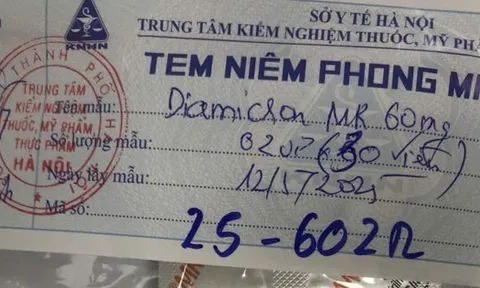 SỞ Y TẾ HÀ NỘI
TRUNG TÂM KIỂM NGHIỆM THUỐC, MỸ PH
KNHN
TEM NIÊM PHONG M
THÀNH PHỐ HÀ NỘI
TRUNG TÂM
KIỂM NGHIỆM
THUỐC, MỸ PHẨM
THỰC PHẨM
HÀ NỘI
Tên mẫu: Diamicron MR 60mg
Số lượng mẫu: (30 viên)
Ngày lấy mẫu:
Mã số: 25-602